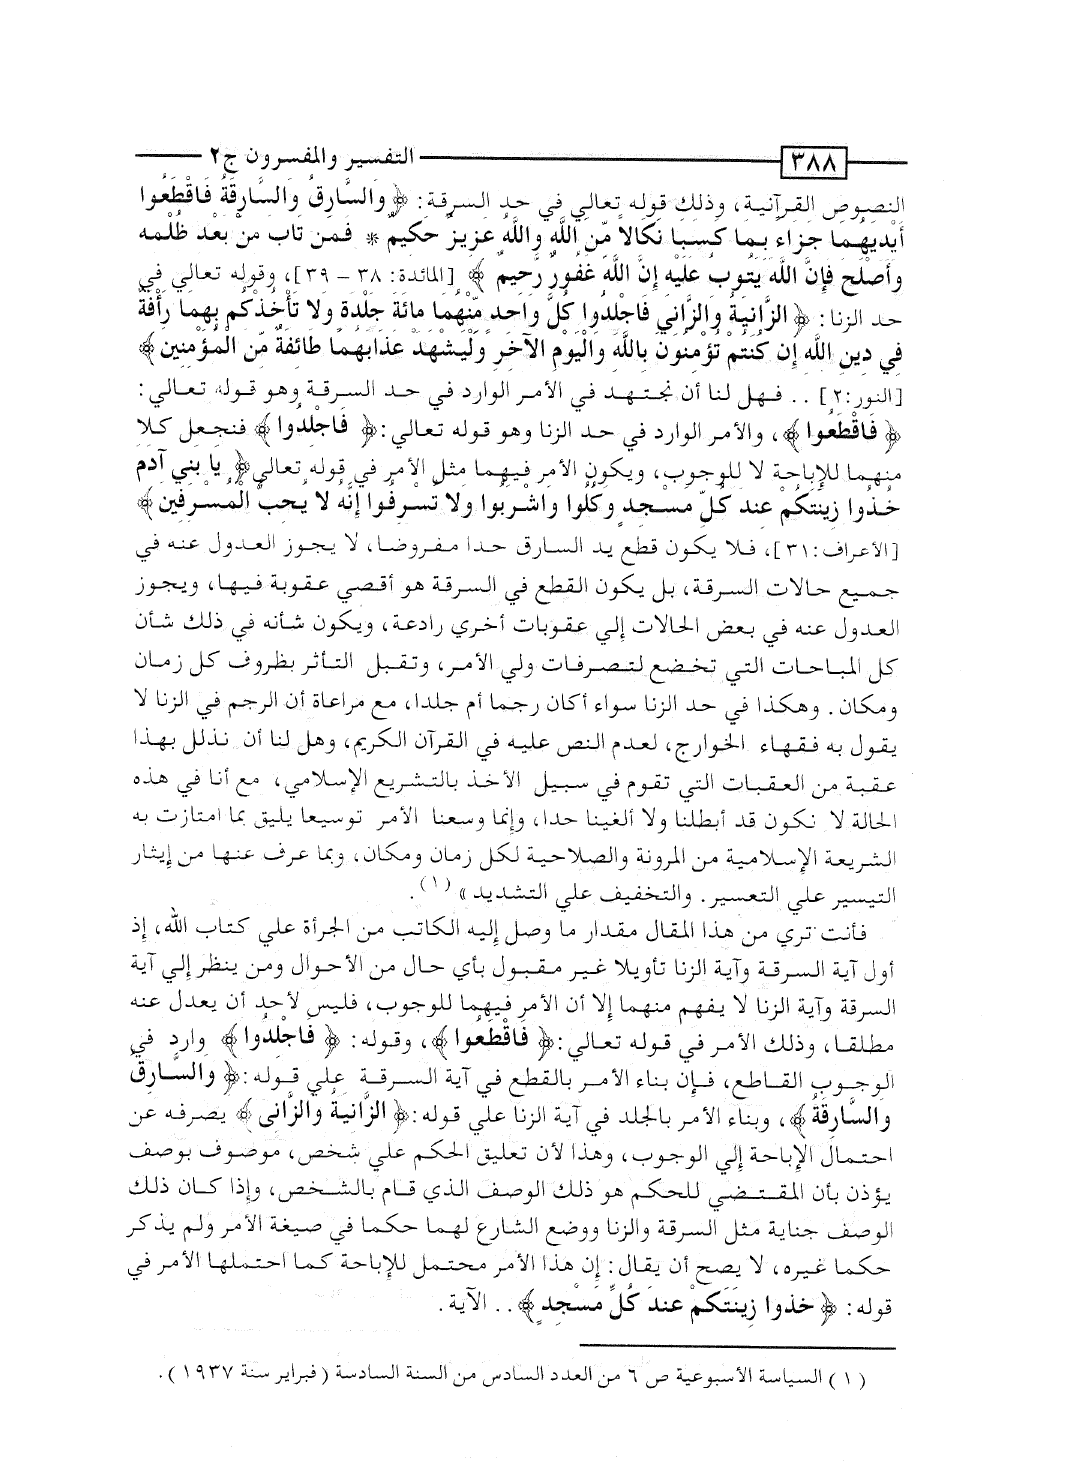 ٣٨٨ التفسير والمفسرون ج٢
النصوص القرآنية، وذلك قوله تعالي في حد السرقة: ﴿ وَالسَّارِقُ وَالسَّارِقَةُ فَاقْطَعُوا
أَيْدِيَهُمَا جَزَاءً بِمَا كَسَبَا نَكَالاً مِّنَ اللَّهِ وَاللَّهُ عَزِيزٌ حَكِيمٌ * فَمَن تَابَ مِنْ بَعْدِ ظُلْمِهِ
وَأَصْلَحَ فَإِنَّ اللَّهَ يَتُوبُ عَلَيْهِ إِنَّ اللَّهَ غَفُورٌ رَّحِيمٌ ﴾ [المائدة: ٣٨ – ٣٩]، وقوله تعالي في
حد الزنا: ﴿ الزَّانِيَةُ وَالزَّانِي فَاجْلِدُوا كُلَّ وَاحِدٍ مِّنْهُمَا مِائَةَ جَلْدَةٍ وَلا تَأْخُذْكُم بِهِمَا رَأْفَةٌ
فِي دِينِ اللَّهِ إِن كُنتُمْ تُؤْمِنُونَ بِاللَّهِ وَالْيَوْمِ الآخِرِ وَلْيَشْهَدْ عَذَابَهُمَا طَائِفَةٌ مِّنَ الْمُؤْمِنِينَ ﴾
[النور:٢] .. فهل لنا أن نجتهد في الأمر الوارد في حد السرقة وهو قوله تعالي:
﴿ فَاقْطَعُوا ﴾، والأمر الوارد في حد الزنا وهو قوله تعالي:﴿ فَاجْلِدُوا ﴾ فنجعل كلا
منهما للإباحة لا للوجوب، ويكون الأمر فيهما مثل الأمر في قوله تعالي﴿ يَا بَنِي آدَمَ
خُذُوا زِينَتَكُمْ عِندَ كُلِّ مَسْجِدٍ وَكُلُوا وَاشْرَبُوا وَلا تُسْرِفُوا إِنَّهُ لا يُحِبُّ الْمُسْرِفِينَ ﴾
[الأعراف:٣١]، فلا يكون قطع يد السارق حدا مفروضا، لا يجوز العدول عنه في
جميع حالات السرقة، بل يكون القطع في السرقة هو أقصي عقوبة فيها، ويجوز
العدول عنه في بعض الحالات إلي عقوبات أخري رادعة، ويكون شأنه في ذلك شأن
كل المباحات التي تخضع لتصرفات ولي الأمر، وتقبل التأثر بظروف كل زمان
ومكان. وهكذا في حد الزنا سواء أكان رجما أم جلدا، مع مراعاة أن الرجم في الزنا لا
يقول به فقهاء الخوارج، لعدم النص عليه في القرآن الكريم، وهل لنا أن نذلل بهذا
عقبة من العقبات التي تقوم في سبيل الأخذ بالتشريع الإسلامي، مع أنا في هذه
الحالة لا نكون قد أبطلنا ولا ألغينا حدا، وإنما وسعنا الأمر توسيعا يليق بما امتازت به
الشريعة الإسلامية من المرونة والصلاحية لكل زمان ومكان، وبما عرف عنها من إيثار
التيسير علي التعسير. والتخفيف علي التشديد » (١).
فأنت تري من هذا المقال مقدار ما وصل إليه الكاتب من الجرأة علي كتاب الله، إذ
أول آية السرقة وآية الزنا تأويلا غير مقبول بأي حال من الأحوال ومن ينظر إلي آية
السرقة وآية الزنا لا يفهم منهما إلا أن الأمر فيهما للوجوب، فليس لأحد أن يعدل عنه
مطلقا، وذلك الأمر في قوله تعالي:﴿ فَاقْطَعُوا ﴾، وقوله: ﴿ فَاجْلِدُوا ﴾ وارد في
الوجوب القاطع، فإن بناء الأمر بالقطع في آية السرقة علي قوله:﴿ وَالسَّارِقُ
وَالسَّارِقَةُ ﴾، وبناء الأمر بالجلد في آية الزنا علي قوله:﴿ الزَّانِيَةُ وَالزَّانِى ﴾ يصرفه عن
احتمال الإباحة إلي الوجوب، وهذا لأن تعليق الحكم علي شخص، موصوف بوصف
يؤذن بأن المقتضي للحكم هو ذلك الوصف الذي قام بالشخص، وإذا كان ذلك
الوصف جناية مثل السرقة والزنا ووضع الشارع لهما حكما في صيغة الأمر ولم يذكر
حكما غيره، لا يصح أن يقال: إن هذا الأمر محتمل للإباحة كما احتملها الأمر في
قوله: ﴿ خُذُوا زِينَتَكُمْ عِندَ كُلِّ مَسْجِدٍ ﴾ .. الآية.
(١) السياسة الأسبوعية ص ٦ من العدد السادس من السنة السادسة (فبراير سنة ١٩٣٧).